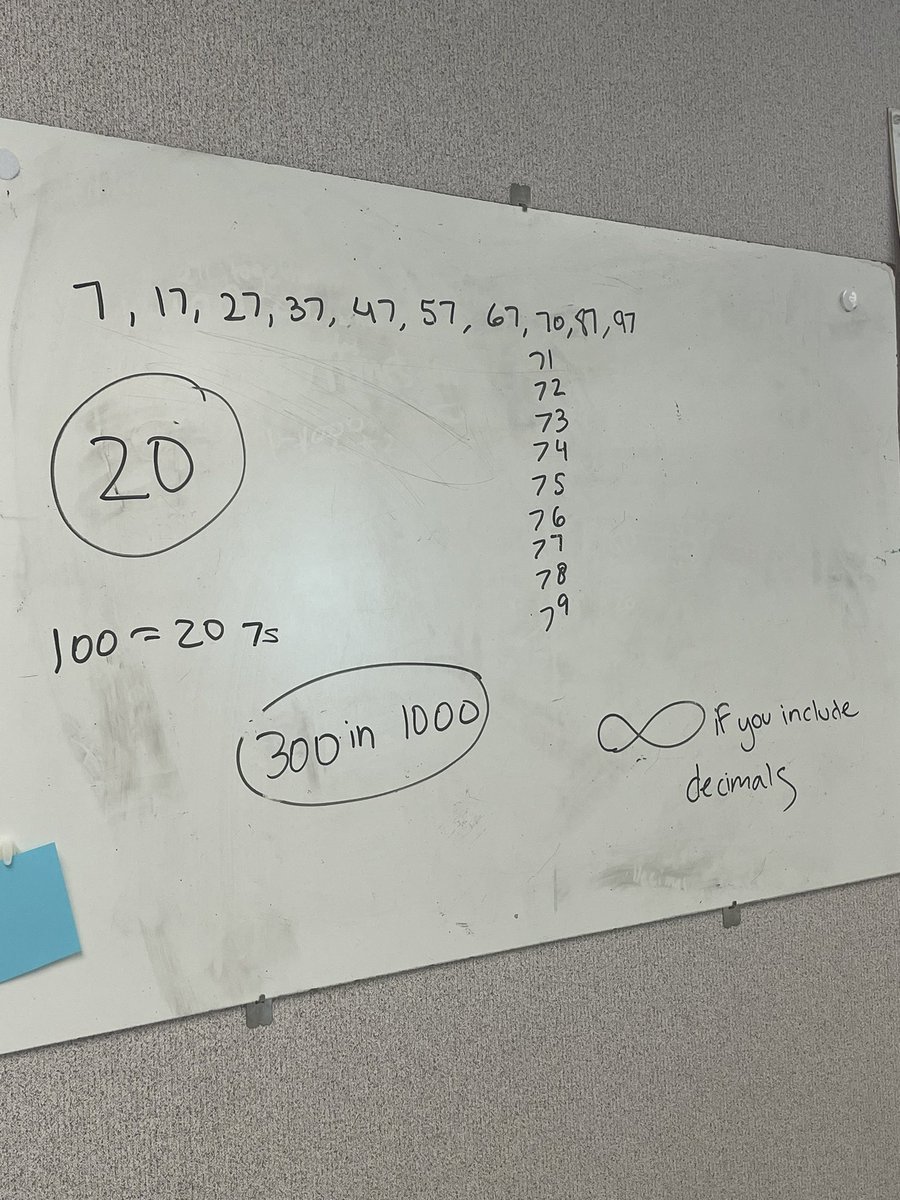 7, 17, 27, 37, 47, 57, 67, 70, 87, 97
71
72
73
74
75
76
77
78
79
20
100 = 20 7s
300 in 1000
∞ if you include
decimals